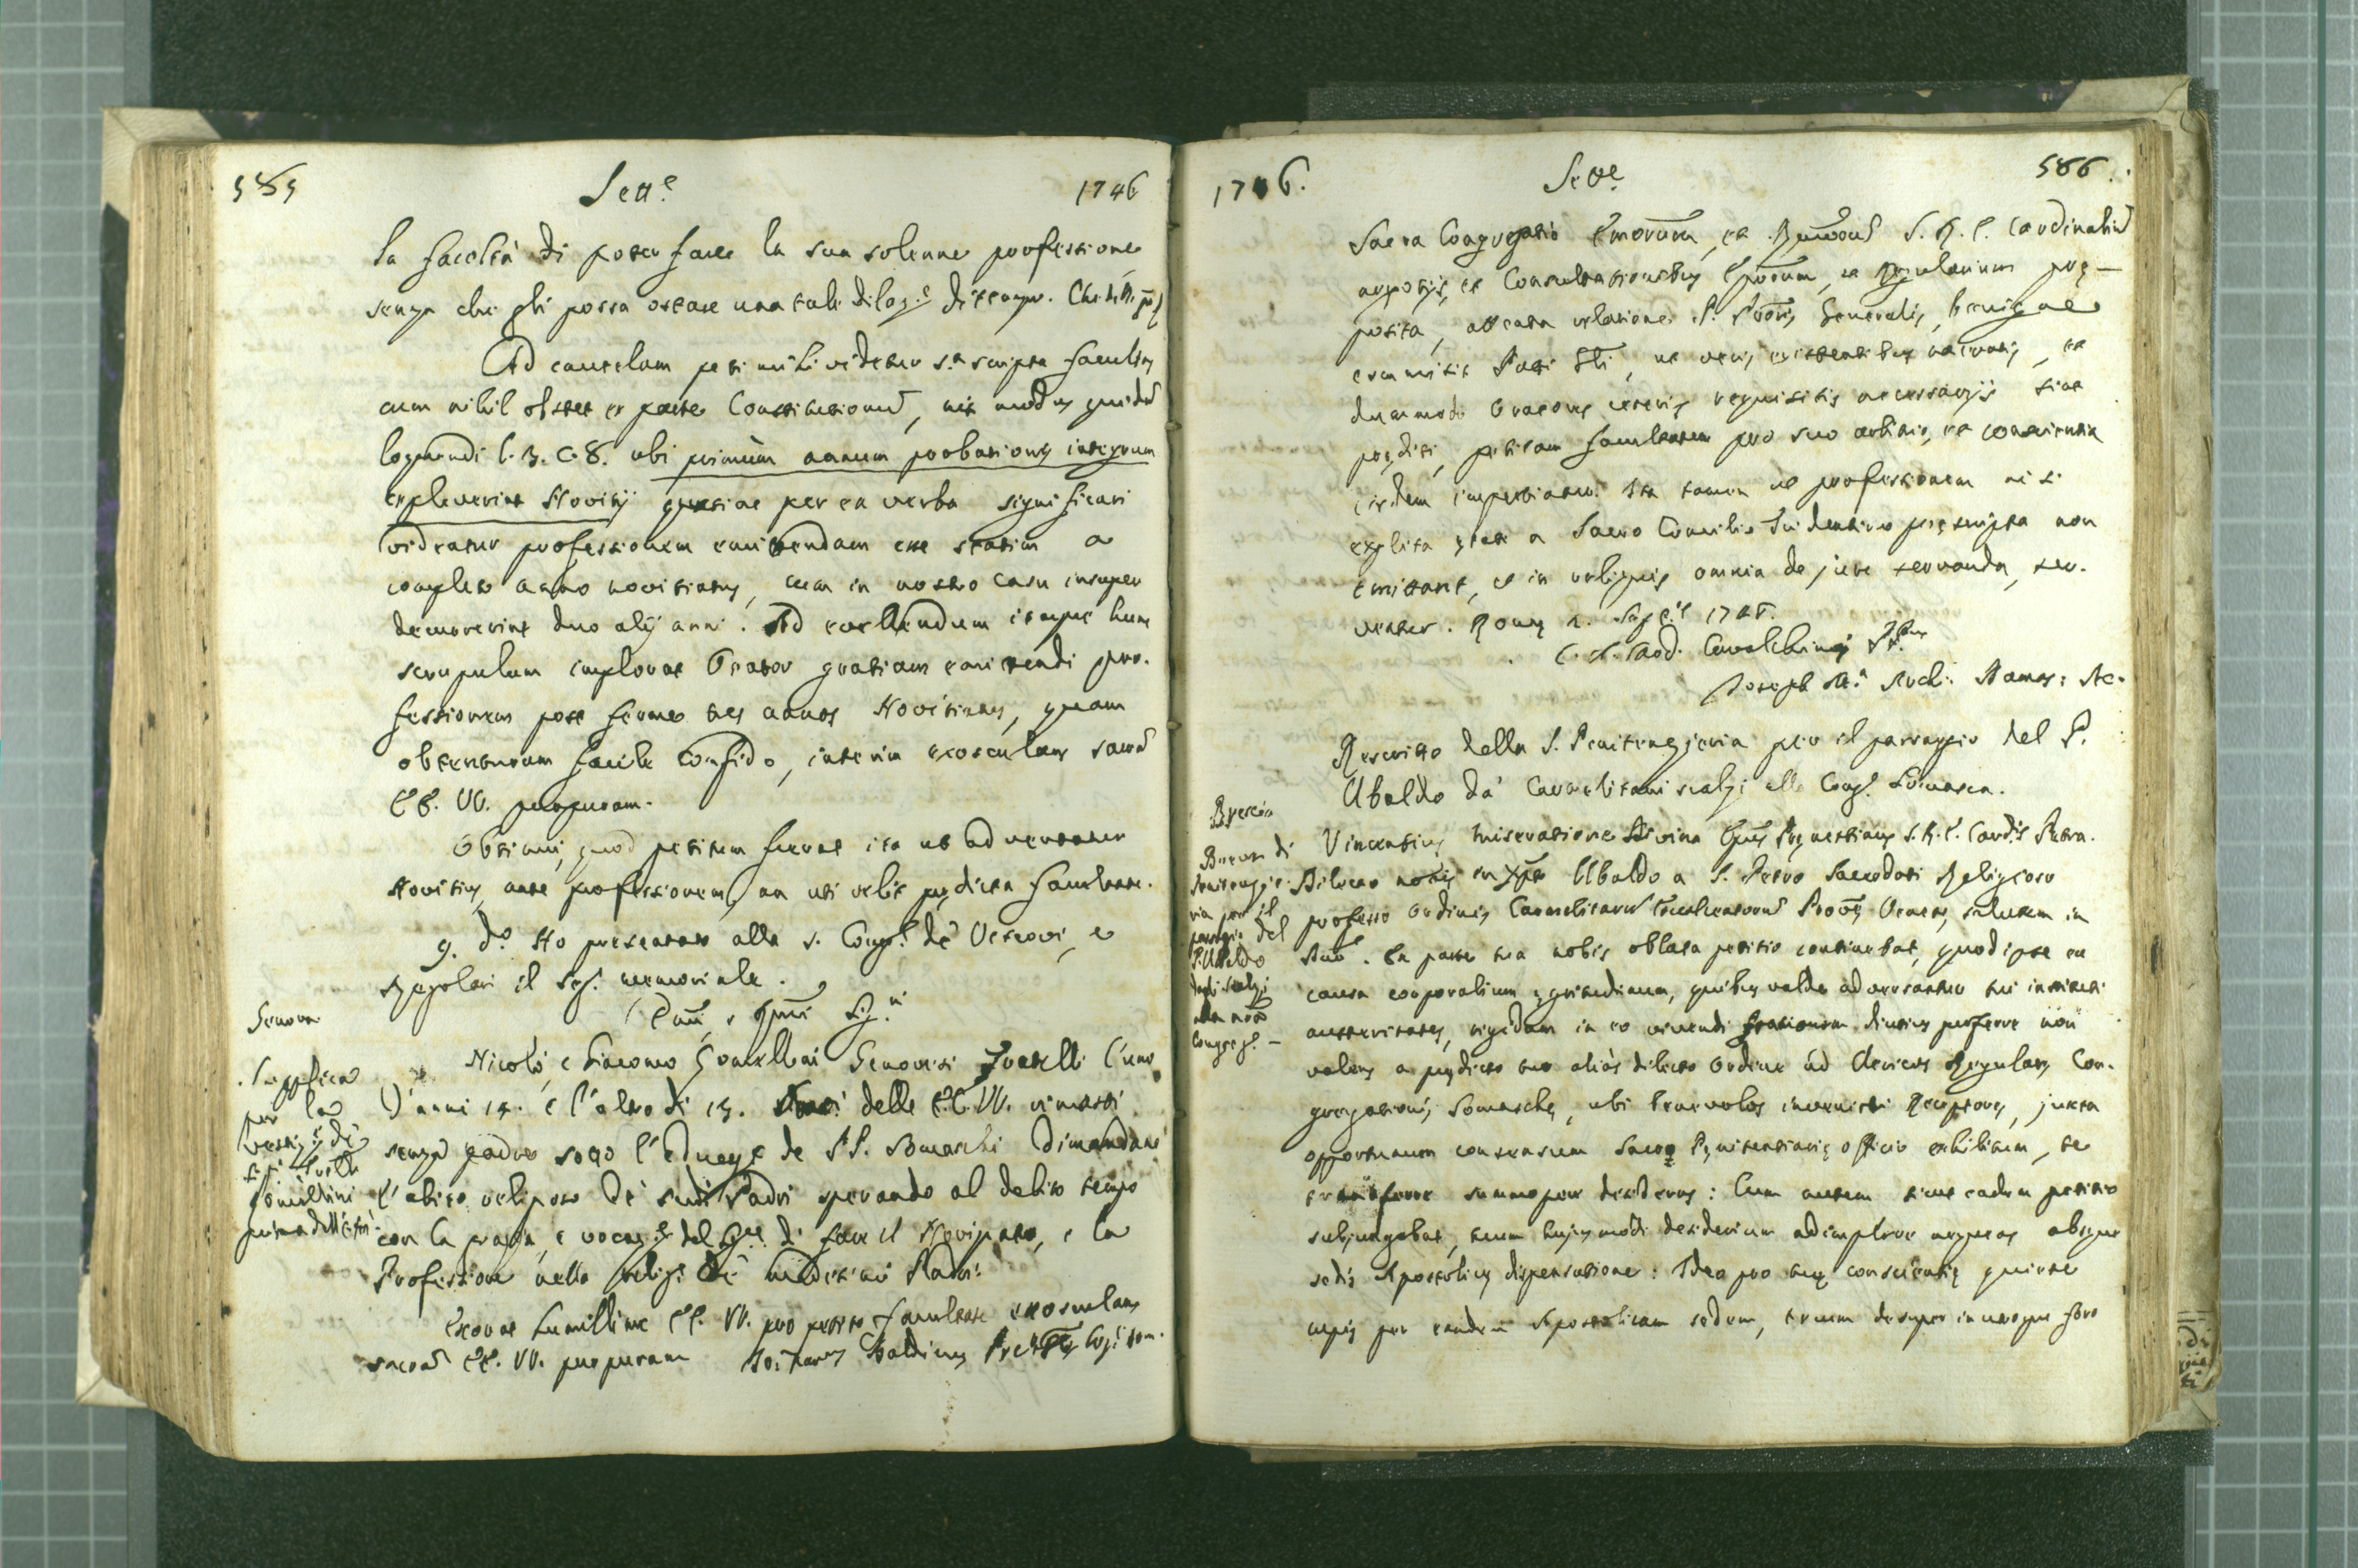 585 Sett.e 1746
la facoltà di poter fare la sua solenne professione
senza che gli possa ostare una tale dilaz.e di tempo. Che della
Ad cautelam peti mihi videtur s.a scripta facultas
cum nihil obstet ex parte Constitutionū, nisi modus quidā
loquendi l. 3. c. 8. ubi primùm annum probationis integrum
expleverint Novitij quatiae per ea verba significari
videatur professionem emittendam esse statim a
completo anno novitiatus, cum in nostro casu insuper
decurrerint duo alij anni. Ad evellendum itaque hunc
scrupulum implorat Orator gratiam emittendi pro-
fessionem post ferme tres annos Novitiatus, quam
obtenturum facile confido, interim exosculans sacrā
EE. VV. purpuram.
Obtinui, quod petitum fuerat ita ut advertatur
Novitius ante professionem, an uti velit pędicta facultate.
9. d.o Ho presentato alla s. Cong.e de' Vescovi, e
Regolari il seg. memoriale.
Genova
Emi, e Rmi Sig.ri
Nicolò, e Giacomo Gomellini Genovesi Fratelli l'uno
d'anni 14. e l'altro di 13. delle EE. VV. rimasti
senza padre sotto l'educaz.e de PP. Somaschi dimandano
l'abito religioso de' sudi Padri sperando al debito tempo
con la grazia, e vocaz.e del Sig.re di fare il Noviziato, e la
Professione nella relig.e de' medesimi Padri.
Supplica
per la
vestiz.e di
Fratelli
Gomellini
prima dell'età
Exorat humillime EE. VV. pro petita facultate exosculans
sacrā EE. VV. purpuram Baldinus
1746. Sett.e 586.
Sacra Congregatio Emorum, et Rmorū S. R. E. Cardinaliū
negotijs, et Consultationibus Eporum, et Regularium pre-
posita, attenta relatione P. Pris Generalis, benigne
commisit Patri Gli, ut veris existentibus narratis, et
dummodo Oratores ceteris requisitis necessarijs sint
pręditi, petitam facultatem pro suo arbitrio, et conscientia
iisdem impertiatur. Ita tamen ut professionem nisi
expleta ętate a Sacro Concilio Tridentino pręscripta non
emittant, et in reliquis omnia de jure servanda, ser-
ventur. Romę 2. 1746.
C. A. Card. Cavalchinus Pf.us
Joseph M.a
Rescritto della S. Penitenzieria per il passaggio del P.
Ubaldo da' Carmelitani scalzi alla Cong.e Somasca.
Brescia
Breve di
Penitenzie-
ria per il
passaggio del
P. Ubaldo
dagli scalzi
alla nra
Congreg.e
Vincentius miseratione divina Epus Pręnestinus S. R. E. Card.is Petra.
Dilecto nobis in Xpo Ubaldo a S. Petro Sacerdoti Religioso
professo Ordinis Carmelitarū Excalceatorū Provę Venetę, salutem in
Dno. Ex parte tua nobis oblata petitio continebat, quod ipse ex
causa corporalium ęgritudinum, quibus valde adversantur tui instituti
austeritates, rigidam in eo vivendi rationem diutius perferre non
valens a pędicto tuo aliàs dilecto Ordine ad Clericos Regulares Con-
gregationis Somaschę, ubi benevolos invenisti Receptores, juxta
opportunum consensum Sacro Pęnitentiarię officio exhibitum, te
transferre summopere desideras: Cum autem sicut eadem petitio
subjungebat, tuum hujusmodi desiderium adimplere nequeas absque
sedis Apostolicę dispensatione: Ideo pro tuę conscientię quiete
cupis per eandem Apostolicam sedem, tecum desuper in utroque foro